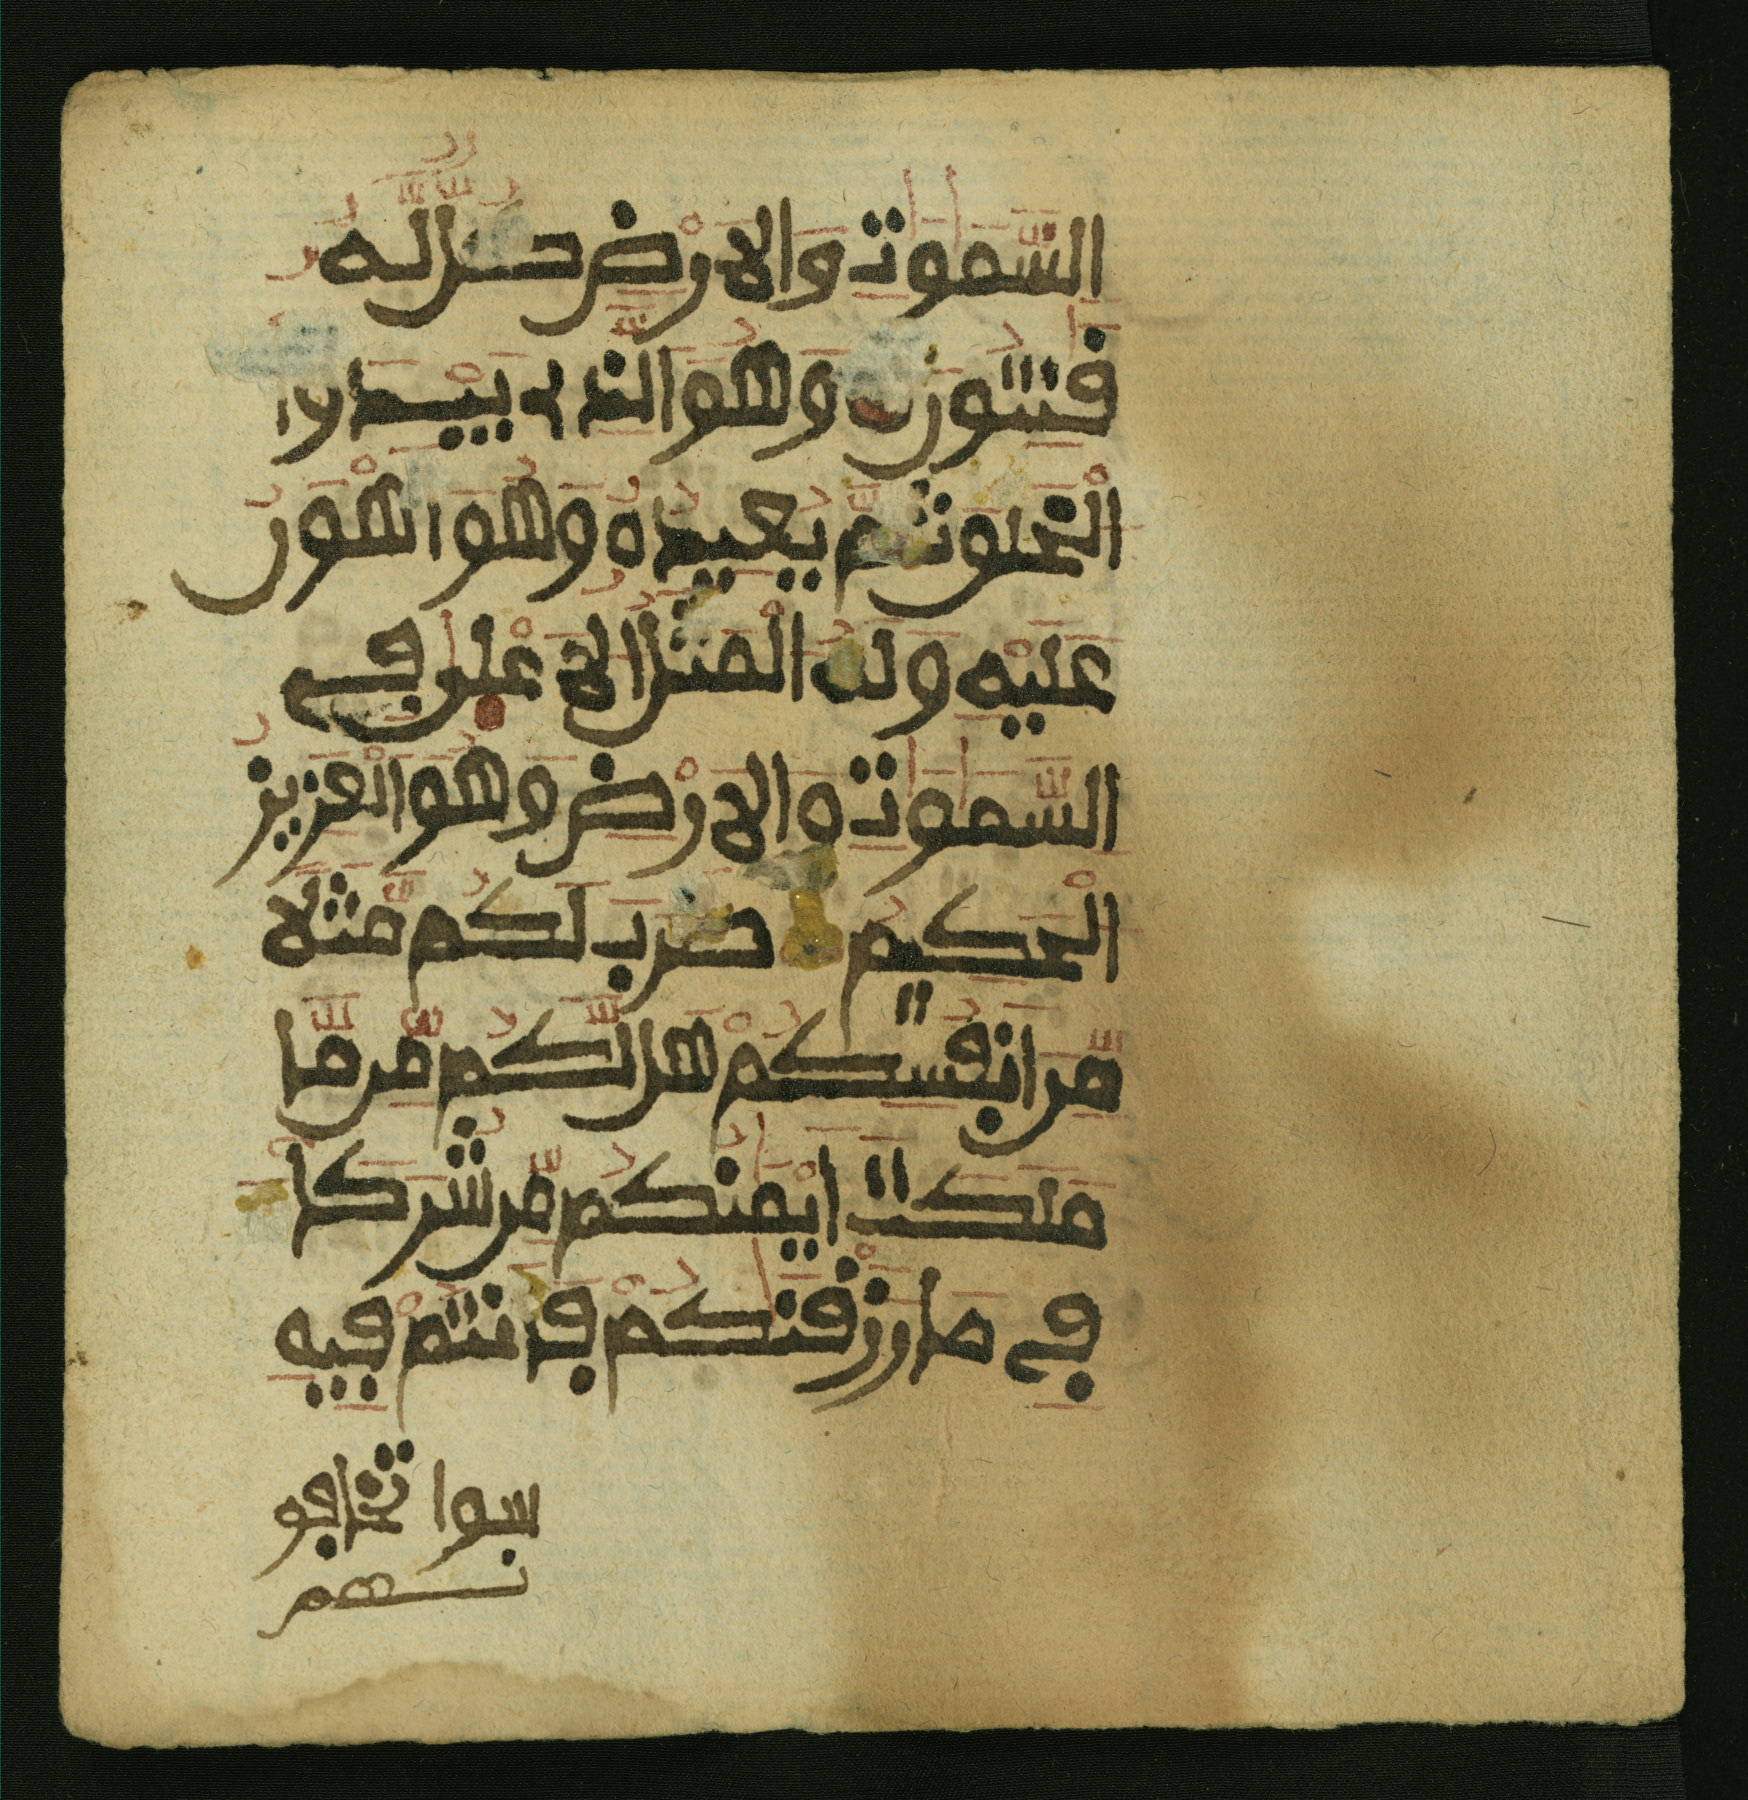 السَّمَوٰتِ وَالَارْضِ كُلٌّ لَّهُ
قَٰنِتُونَ وَهُوَ الَّذِے يَبْدَؤُا
الْخَلْقَ ثُمَّ يُعِيدُهُ وَهُوَ أَهْوَنُ
عَلَيْهِ وَلَهُ الْمَثَلُ الَاعْلَىٰ فِے
السَّمَٰوَٰتِ وَالَارْضِ وَهُوَ الْعَزِيزُ
الْحَكِيمُ ضَرَبَ لَكُم مَّثَلًا
مِّنَ انفُسِكُمْ هَل لَّكُم مِّن مَّا
مَلَكَتَ اَيْمَٰنُكُم مِّن شُرَكَا
فِے مَا رَزَقْنَٰكُمْ فَأَنتُمْ فِيهِ
سوا تخافو
نهم